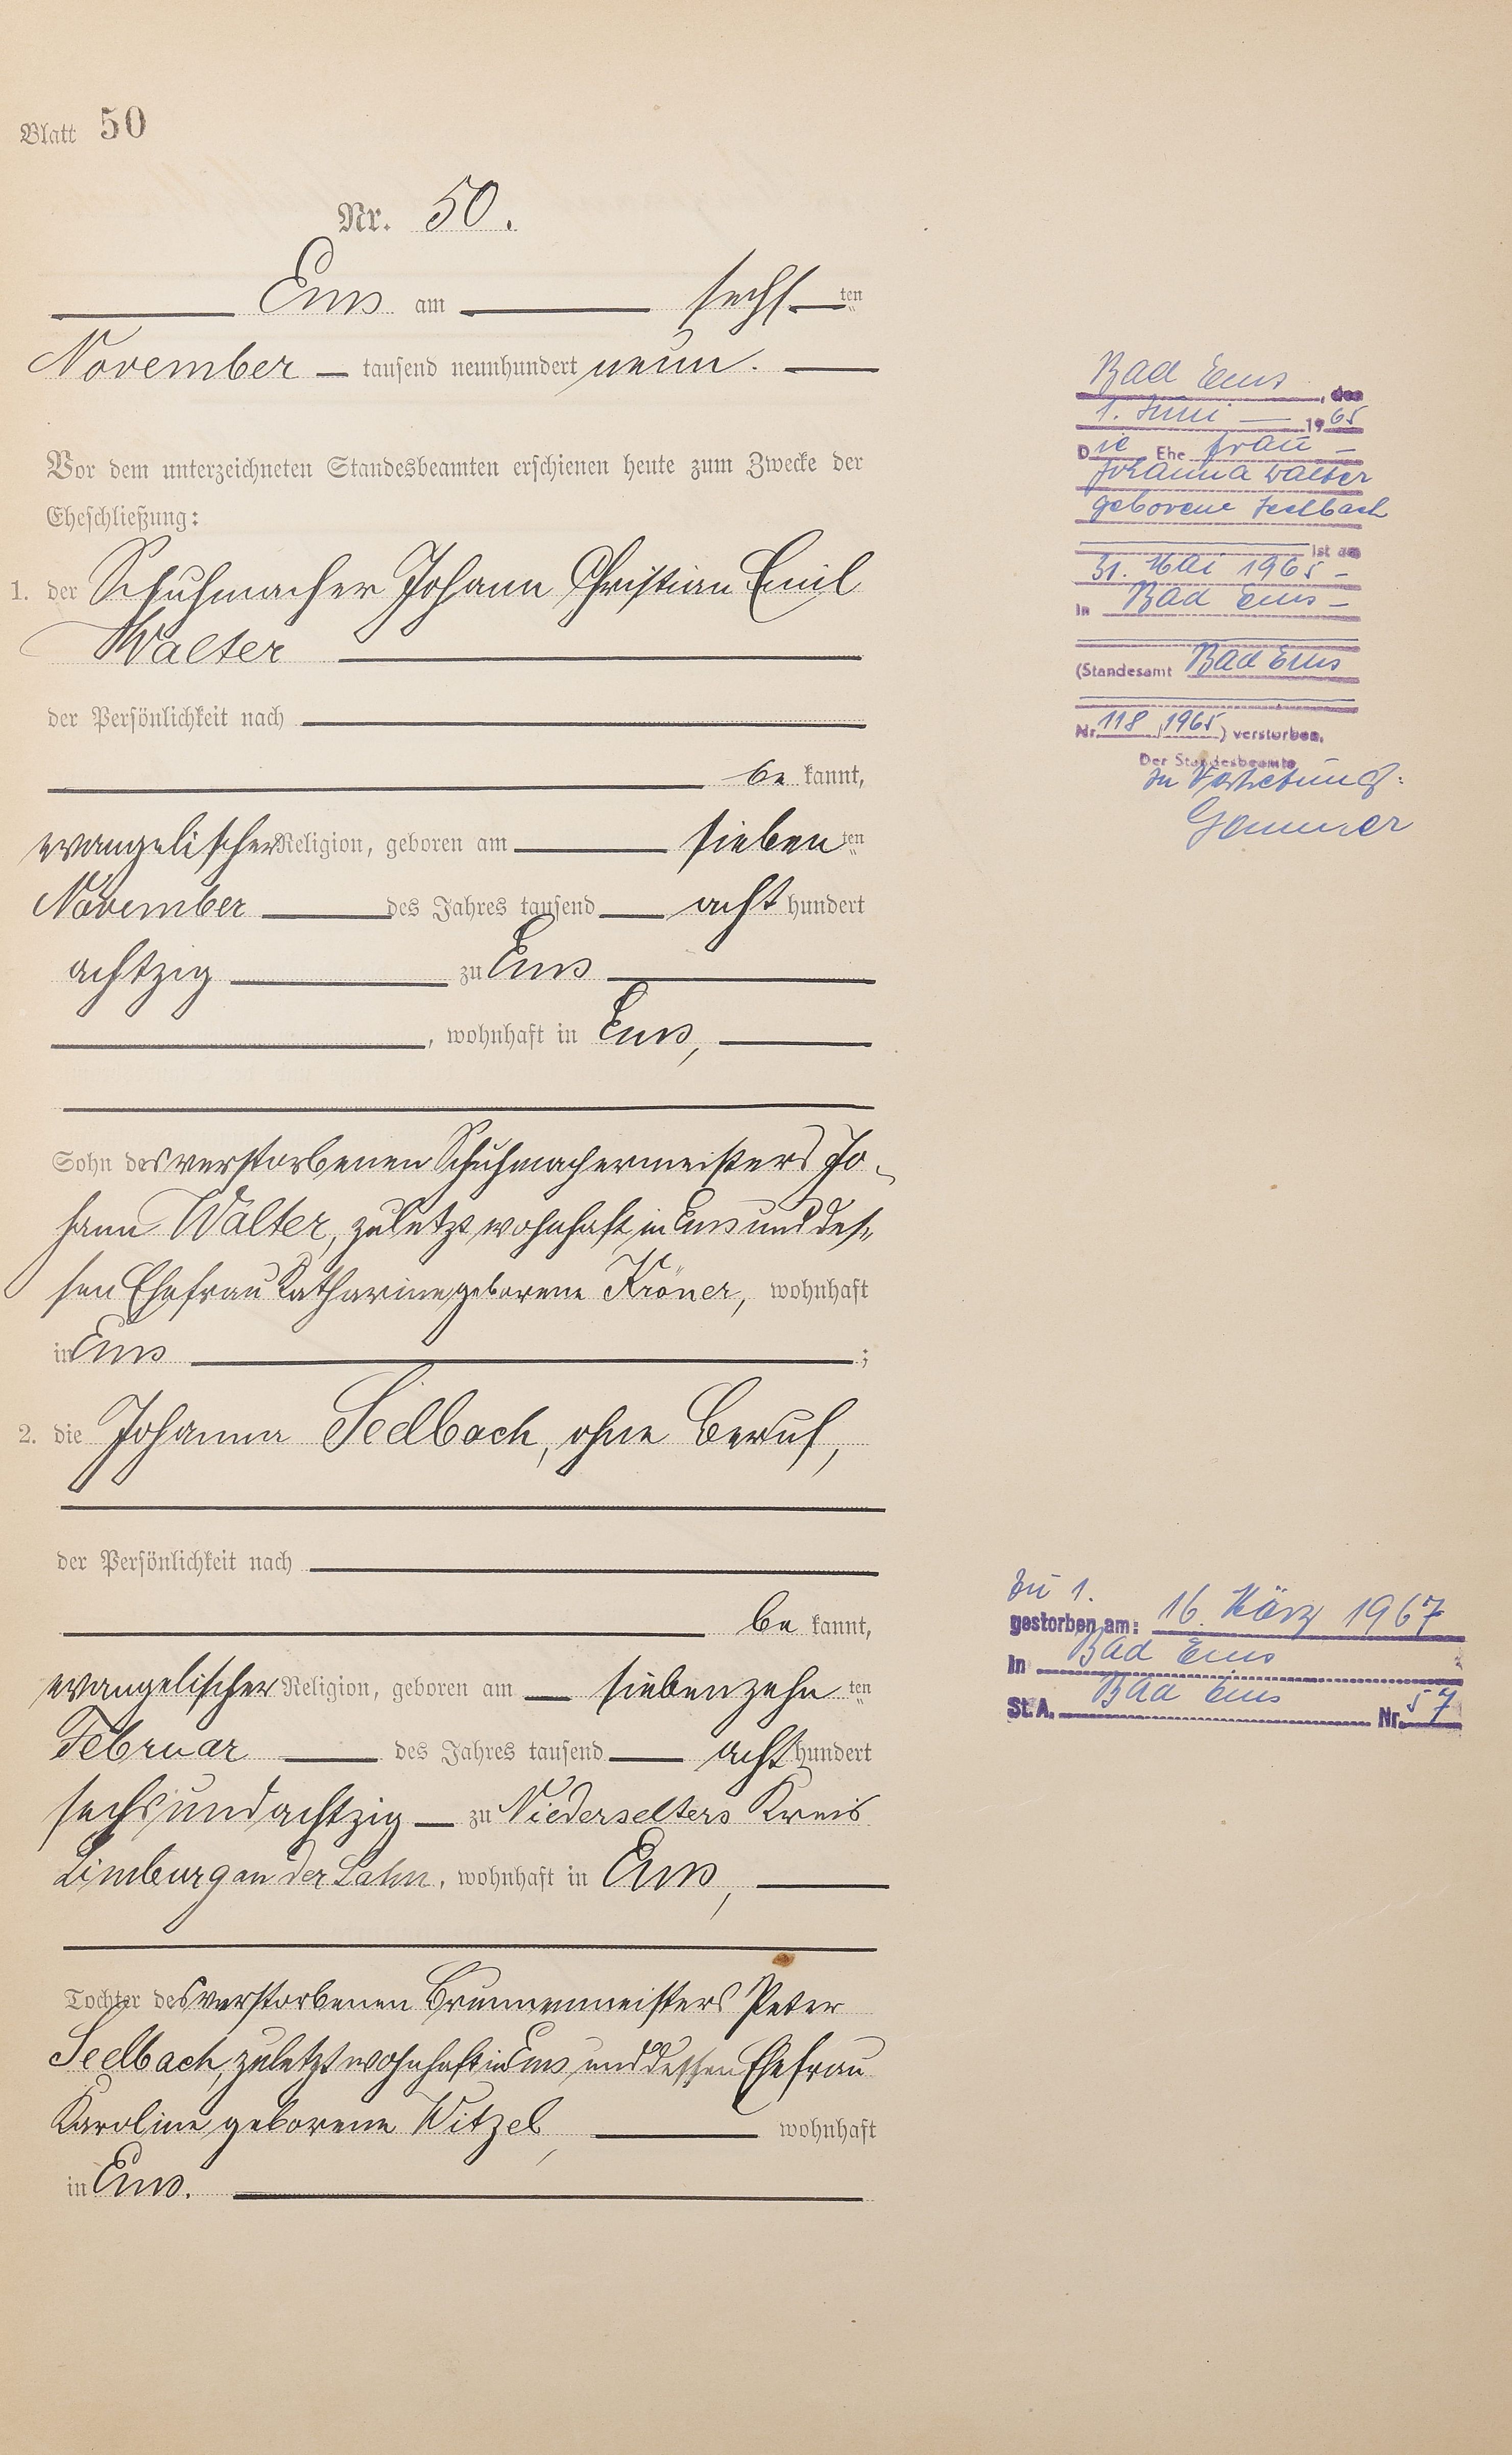 Blatt 50
Nr. 50.
Ems am sechsten
November tausend neunhundert neun.
Vor dem unterzeichneten Standesbeamten erschienen heute zum Zwecke der
Eheschließung:
1. der Schuhmacher Johann Christian Emil
Walter
der Persönlichkeit nach
bekannt,
evangelischer Religion, geboren am siebenten
November des Jahres tausend acht hundert
achtzig zu Ems
, wohnhaft in Ems,
Sohn des verstorbenen Schuhmachermeisters Jo-
hann Walter, zuletzt wohnhaft in Ems und des-
sen Ehefrau Katharine geborene Kröner, wohnhaft
in Ems ;
2. die Johanna Seelbach, ohne Beruf,
der Persönlichkeit nach
bekannt,
evangelischer Religion, geboren am siebenzehnten
Februar des Jahres tausend acht hundert
sechsundachtzig zu Niederselters Kreis
Limburg an der Lahn, wohnhaft in Ems,
Tochter des verstorbenen Brunnenmeisters Peter
Seelbach, zuletzt wohnhaft in Ems und dessen Ehefrau
Karoline geborene Witzel, wohnhaft
in Ems.
Bad Ems, den
1. Juni 1965
Die Ehefrau
Johanna Walter
geborene Seelbach
ist am
31. Mai 1965
in Bad Ems
(Standesamt Bad Ems
Nr. 118/1965) verstorben.
Der Standesbeamte
In Vertretung:
Zu 1.
gestorben am: 16. März 1967
in Bad Ems
St. A. Bad Ems Nr. 57